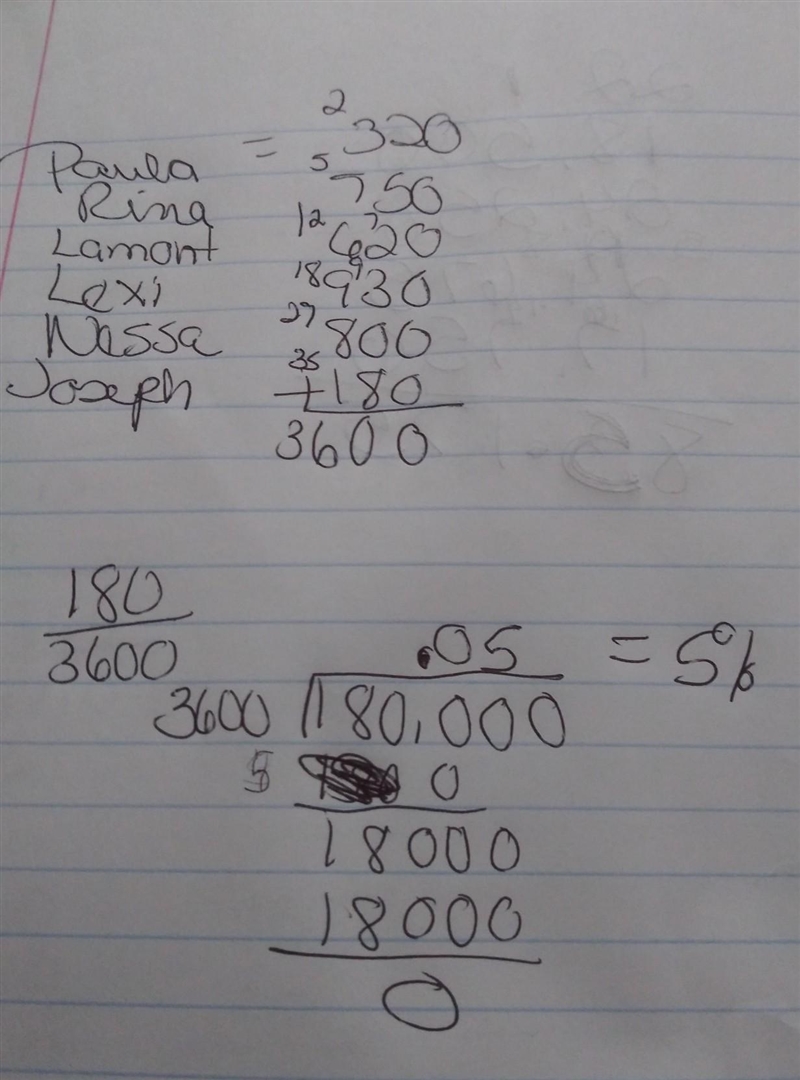 2
Paula = 320
5
Rina 750
12 1
Lamont 620
18 9
Lexi 930
27
Nessa 800
35
Joseph +180
3600
180
3600
.05 = 5%
3600 180.000
5 0
18000
18000
0